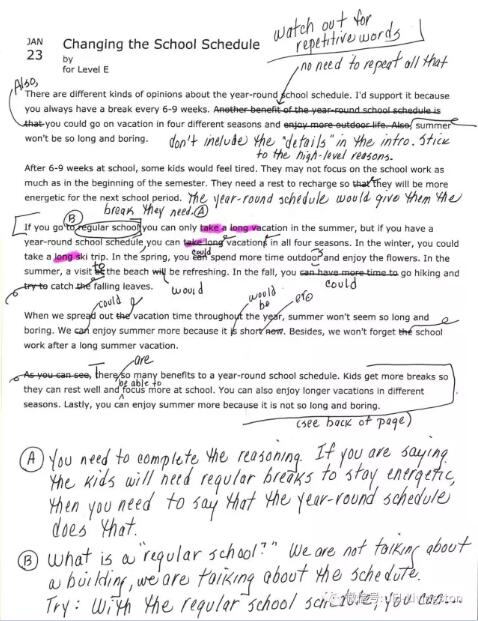 watch out for
repetitive words
JAN
23
Changing the School Schedule
by
for Level E
no need to repeat all that
Also,
There are different kinds of opinions about the year-round school schedule. I'd support it because
you always have a break every 6-9 weeks. Another benefit of the year-round school schedule is
that you could go on vacation in four different seasons and enjoy more outdoor life. Also, summer
won't be so long and boring. don't include the "details" in the intro. Stick
to the high-level reasons.
After 6-9 weeks at school, some kids would feel tired. They may not focus on the school work as
much as in the beginning of the semester. They need a rest to recharge so that they will be more
energetic for the next school period. The year-round schedule would give them the
break they need. A
B
If you go to regular school you can only take a long vacation in the summer, but if you have a
year-round school schedule you can take long vacation in all four seasons. In the winter, you could
take a long ski trip. In the spring, you can spend more time outdoor and enjoy the flowers. In the
could
summer, a visit to the beach will be refreshing. In the fall, you can have more time to go hiking and
try to catch the falling leaves. would could
could would
be
When we spread out the vacation time throughout the year, summer won't seem so long and
boring. We can enjoy summer more because it is short now. Besides, we won't forget the school
work after a long summer vacation.
are
As you can see, there so many benefits to a year-round school schedule. Kids get more breaks so
be able to
they can rest well and focus more at school. You can also enjoy longer vacations in different
seasons. Lastly, you can enjoy summer more because it is not so long and boring.
(see back of page)
A You need to complete the reasoning. If you are saying
the kids will need regular breaks to stay energetic,
then you need to say that the year-round schedule
does that.
B What is a "regular school?" We are not talking about
a building, we are talking about the schedule.
Try: With the regular school schedule, you can...